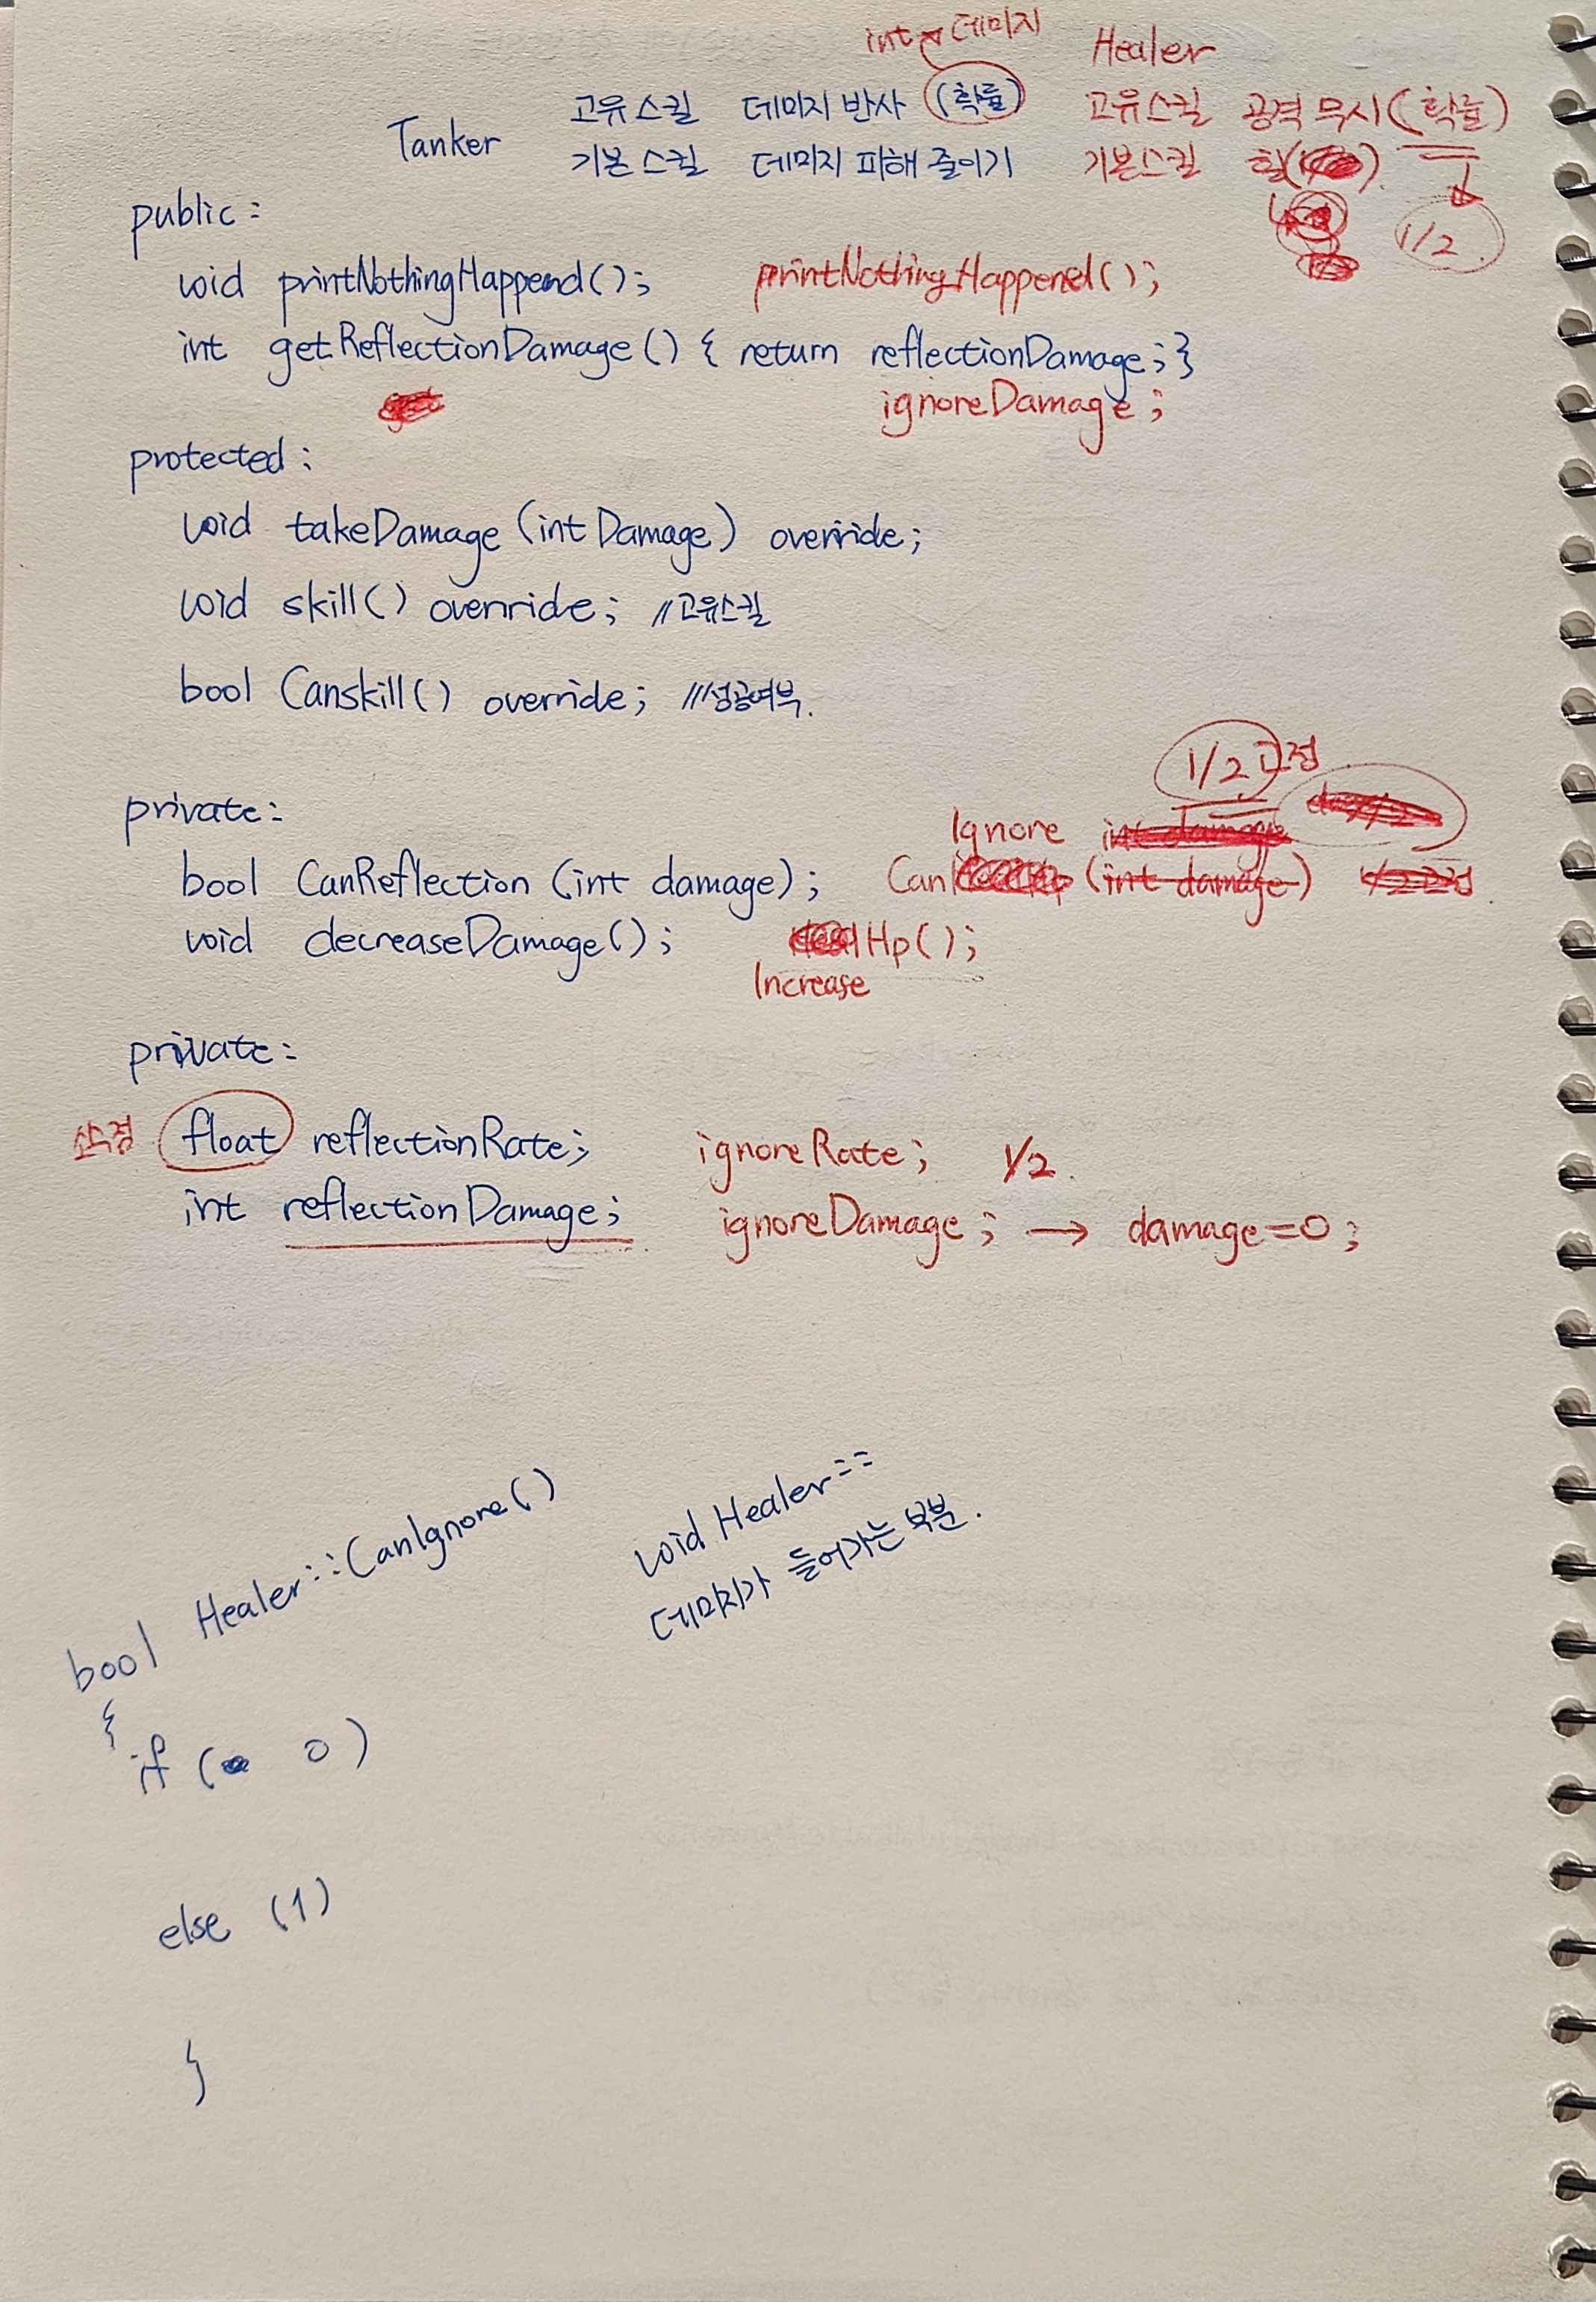 int 데미지 Healer
Tanker 고유스킬 데미지 반사 (확률) 고유스킬 공격 무시 (확률)
기본스킬 데미지 피해 줄이기 기본스킬 힐( )
1/2
public:
void printNothingHappend(); printNothingHappened();
int getReflectionDamage() { return reflectionDamage; }
ignoreDamage;
protected:
void takeDamage (int Damage) override;
void skill() override; //고유스킬
bool Canskill() override; ///성공여부.
1/2 고정
private:
Ignore int damage
bool CanReflection (int damage); Can (int damage) 1/2 고정
void decreaseDamage(); Hp();
Increase
private:
float reflectionRate; ignoreRate; 1/2
int reflectionDamage; ignoreDamage; → damage=0;
bool Healer::CanIgnore()
{
if ( 0 )
else (1)
}
void Healer::
데미지가 들어가는 부분.